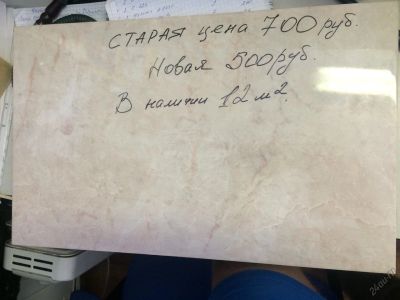 СТАРАЯ цена 700 руб.
Новая 500 руб.
В наличии 12 м².
24au.ru